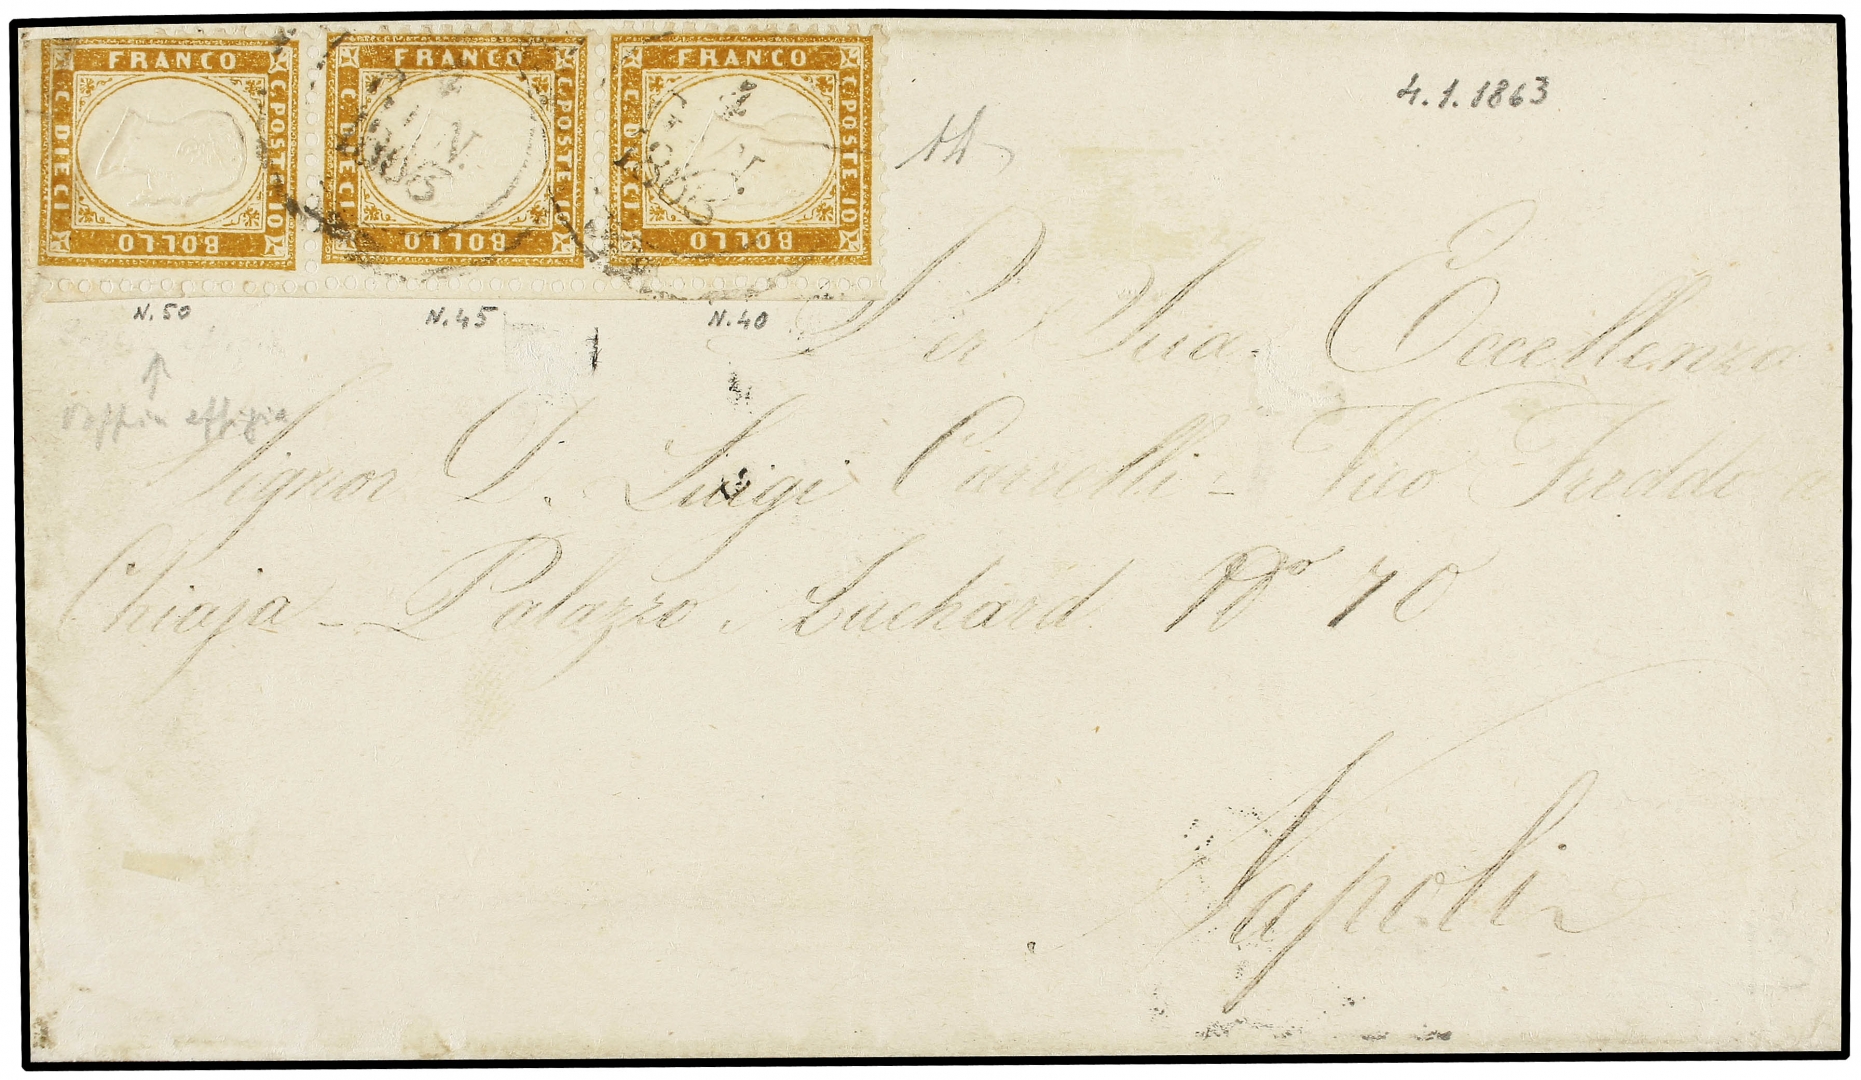 FRANCO FRANCO FRANCO
C. DIECI C. POSTE 10 C. DIECI C. POSTE 10 C. DIECI C. POSTE 10
BOLLO BOLLO BOLLO
4.1.1863
N.50 N.45 N.40
Doppia effigie
Per Sua Eccellenza
Signor D. Luigi Carrelli - Vico Freddo a
Chiaja - Palazzo Luchard No 70
Napoli